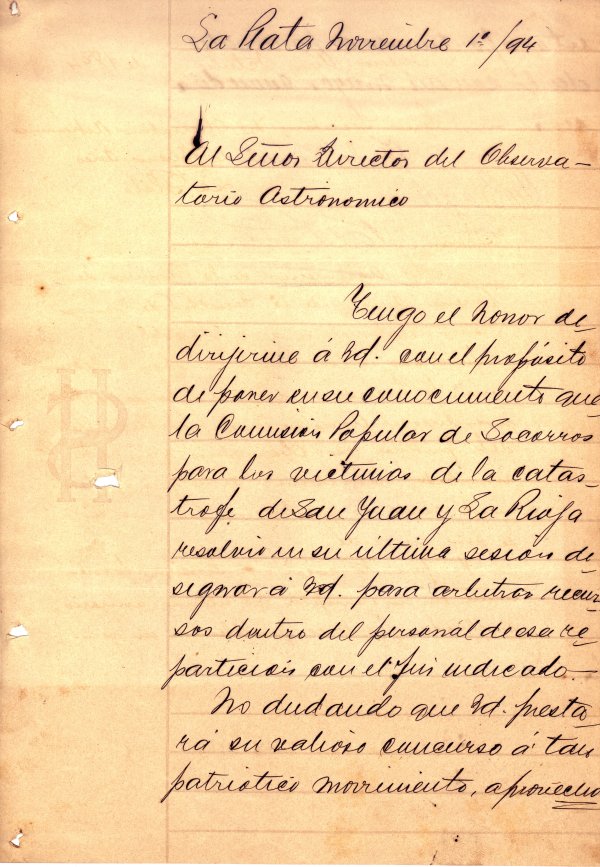 La Plata Noviembre 1º/94
Al Señor Director del Observa-
torio Astronomico
Tengo el honor de
dirijirme á Vd. con el propósito
de poner en su conocimiento que
la Comisión Popular de Socorros
para las victimas de la catas-
trofe de San Juan y La Rioja
resolvió en su última sesión de-
signar á Vd. para arbitrar recur-
sos dentro del personal de esa re-
partición con el fin indicado.—
No dudando que Vd. presta-
rá su valioso concurso á tan
patriótico movimiento, aprovecho